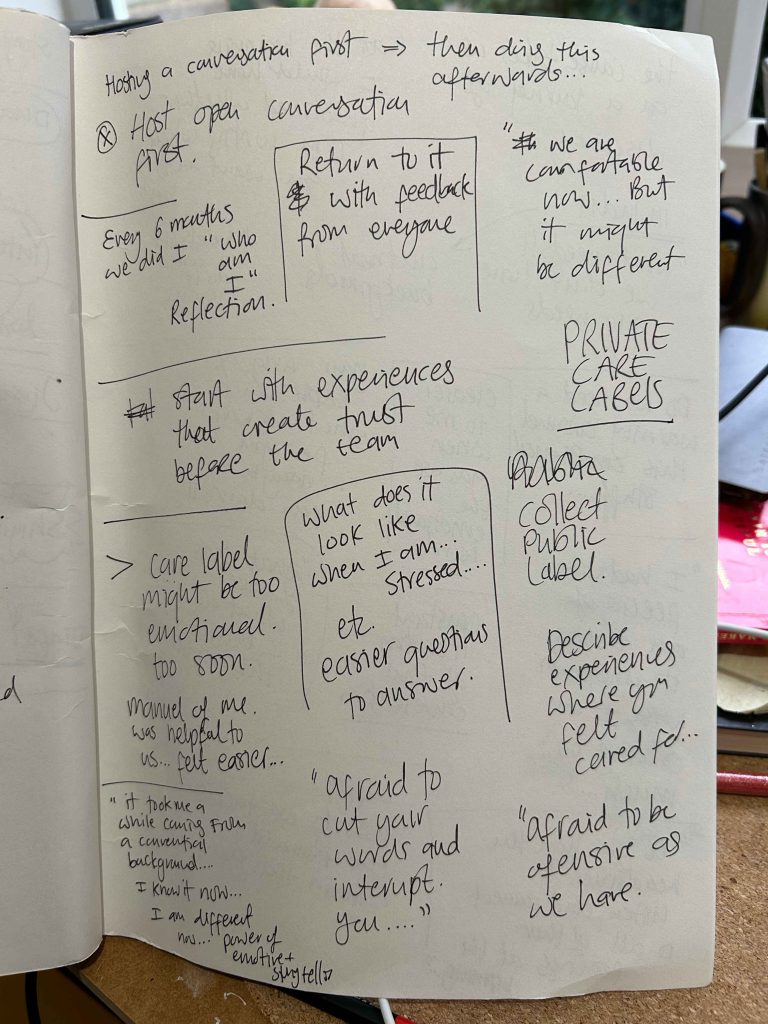 Hosting a conversation first ⇒ then doing this
afterwards...
Host open conversation
first.
Return to it
with feedback
from everyone
"we are
comfortable
now... But
it might
be different
Every 6 months
we did I "who
am
I"
Reflection.
PRIVATE
CARE
LABELS
start with experiences
that create trust
before the team
What does it
look like
when I am...
stressed....
etc.
easier questions
to answer.
collect
public
label.
> care label
might be too
emotional.
too soon.
manuel of me.
was helpful to
us... felt easier...
Describe
experiences
where you
felt
cared for...
"it took me a
while coming from
a convential
background....
I know it now...
I am different
now... power of
emotive +
"afraid to
cut your
words and
interupt.
you...."
"afraid to be
ofensive as
we have.